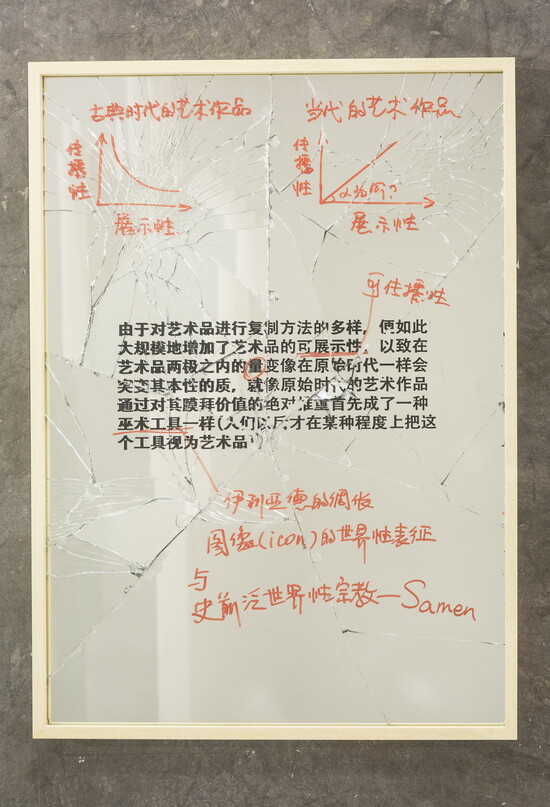 古典时代的艺术作品
传播性
展示性
当代的艺术作品
传播性
α为何?
展示性
可传播性
由于对艺术品进行复制方法的多样，便如此
大规模地增加了艺术品的可展示性，以致在
艺术品两极之内的量变像在原始时代一样会
突变其本性的质，就像原始时代的艺术作品
通过对其膜拜价值的绝对推重首先成了一种
巫术工具一样(人们以后才在某种程度上把这
个工具视为艺术品)
伊利亚德的
图像(icon)的世界性表征
与
史前泛世界性宗教—Samen